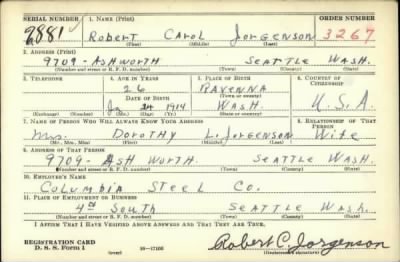 SERIAL NUMBER 1. NAME (Print) ORDER NUMBER
2881 Robert Carol Jorgenson 3267
(First) (Middle) (Last)
2. ADDRESS (Print)
9709 - Ashworth Seattle Wash.
(Number and street or R. F. D. number) (Town) (County) (State)
3. TELEPHONE 4. AGE IN YEARS 5. PLACE OF BIRTH 6. COUNTRY OF CITIZENSHIP
26 Ravenna
DATE OF BIRTH (Town or county)
24 1914 Wash. U.S.A.
(Exchange) (Number) (Mo.) (Day) (Yr.) (State or country)
7. NAME OF PERSON WHO WILL ALWAYS KNOW YOUR ADDRESS 8. RELATIONSHIP OF THAT PERSON
Mrs. Dorothy L. Jorgenson Wife
(Mr., Mrs., Miss) (First) (Middle) (Last)
9. ADDRESS OF THAT PERSON
9709 - Ashworth. Seattle Wash.
(Number and street or R. F. D. number) (Town) (County) (State)
10. EMPLOYER'S NAME
Columbia Steel Co.
11. PLACE OF EMPLOYMENT OR BUSINESS
4th South Seattle Wash.
(Number and street or R. F. D. number) (Town) (County) (State)
I AFFIRM THAT I HAVE VERIFIED ABOVE ANSWERS AND THAT THEY ARE TRUE.
REGISTRATION CARD
D. S. S. Form 1 (over) 16—17105 Robert C. Jorgenson
(Registrant's signature)